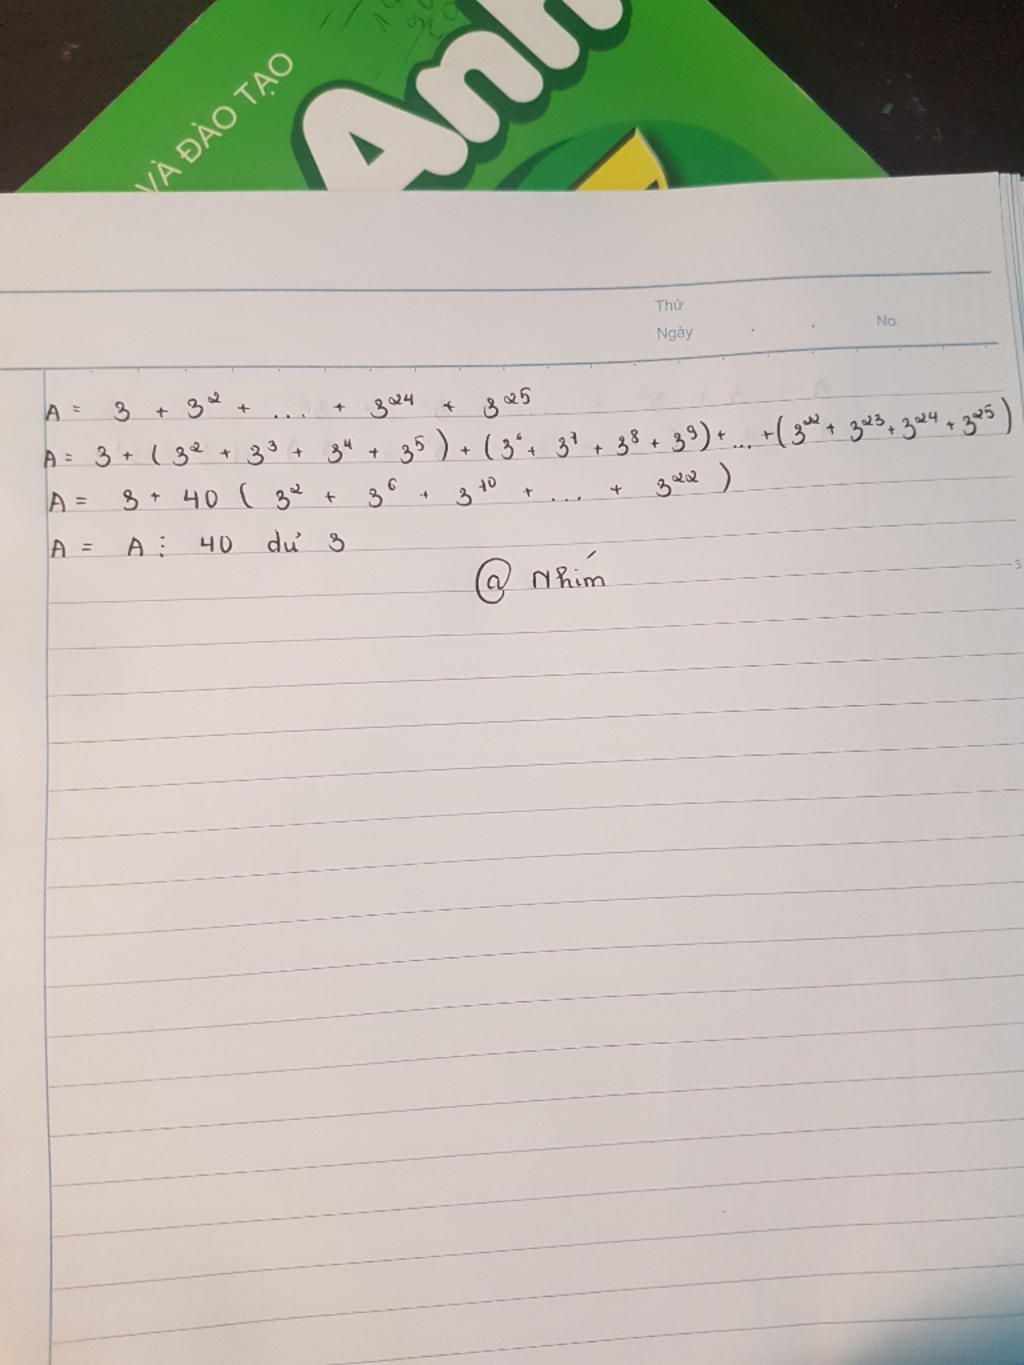 VÀ ĐÀO TẠO
Anh
Thứ
Ngày . . No.
A = 3 + 3² + ... + 3²⁴ + 3²⁵
A = 3 + (3² + 3³ + 3⁴ + 3⁵) + (3⁶ + 3⁷ + 3⁸ + 3⁹) + ... + (3²² + 3²³ + 3²⁴ + 3²⁵)
A = 3 + 40 (3² + 3⁶ + 3¹⁰ + ... + 3²²)
A = A ⋮ 40 dư 3
@ Nhím
5